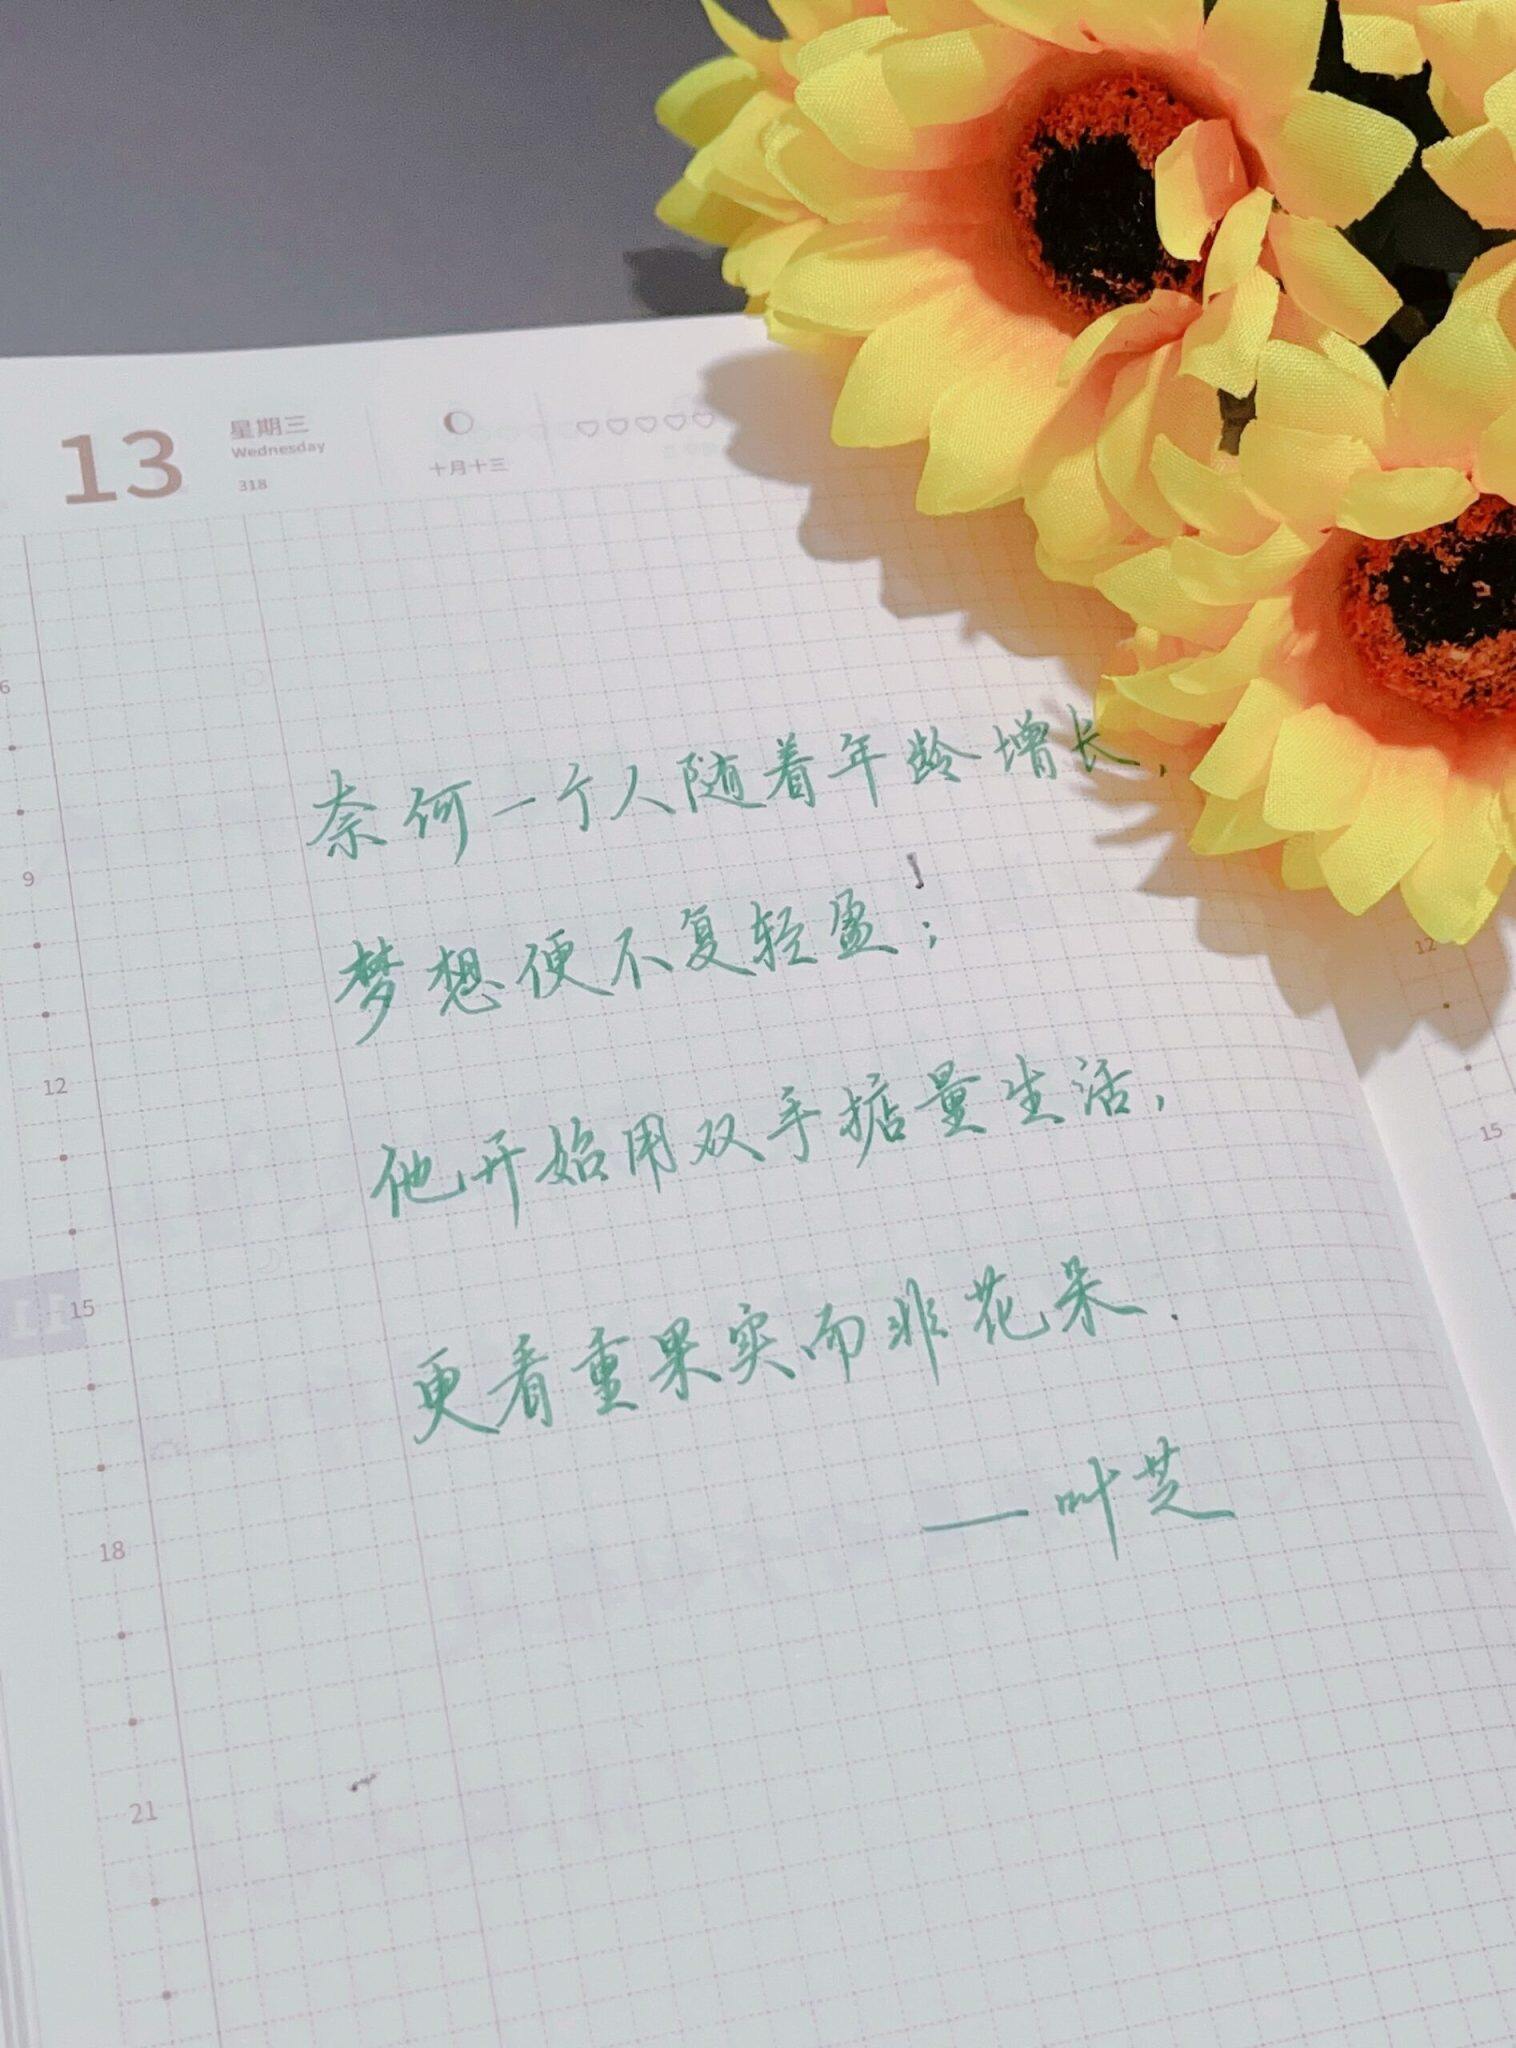 13
星期三
Wednesday
318
十月十三
奈何一个人随着年龄增长，
梦想便不复轻盈；
他开始用双手掂量生活，
更看重果实而非花朵．
—叶芝
6
9
12
15
18
21
11
12
15